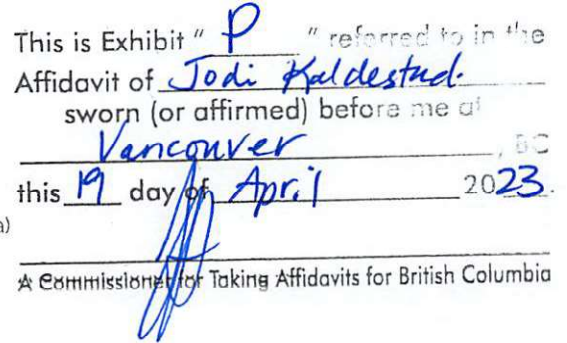 This is Exhibit " P " referred to in the
Affidavit of Jodi Kaldestad.
sworn (or affirmed) before me at
Vancouver, BC
this 19 day of April 2023.
a)
A Commissioner for Taking Affidavits for British Columbia